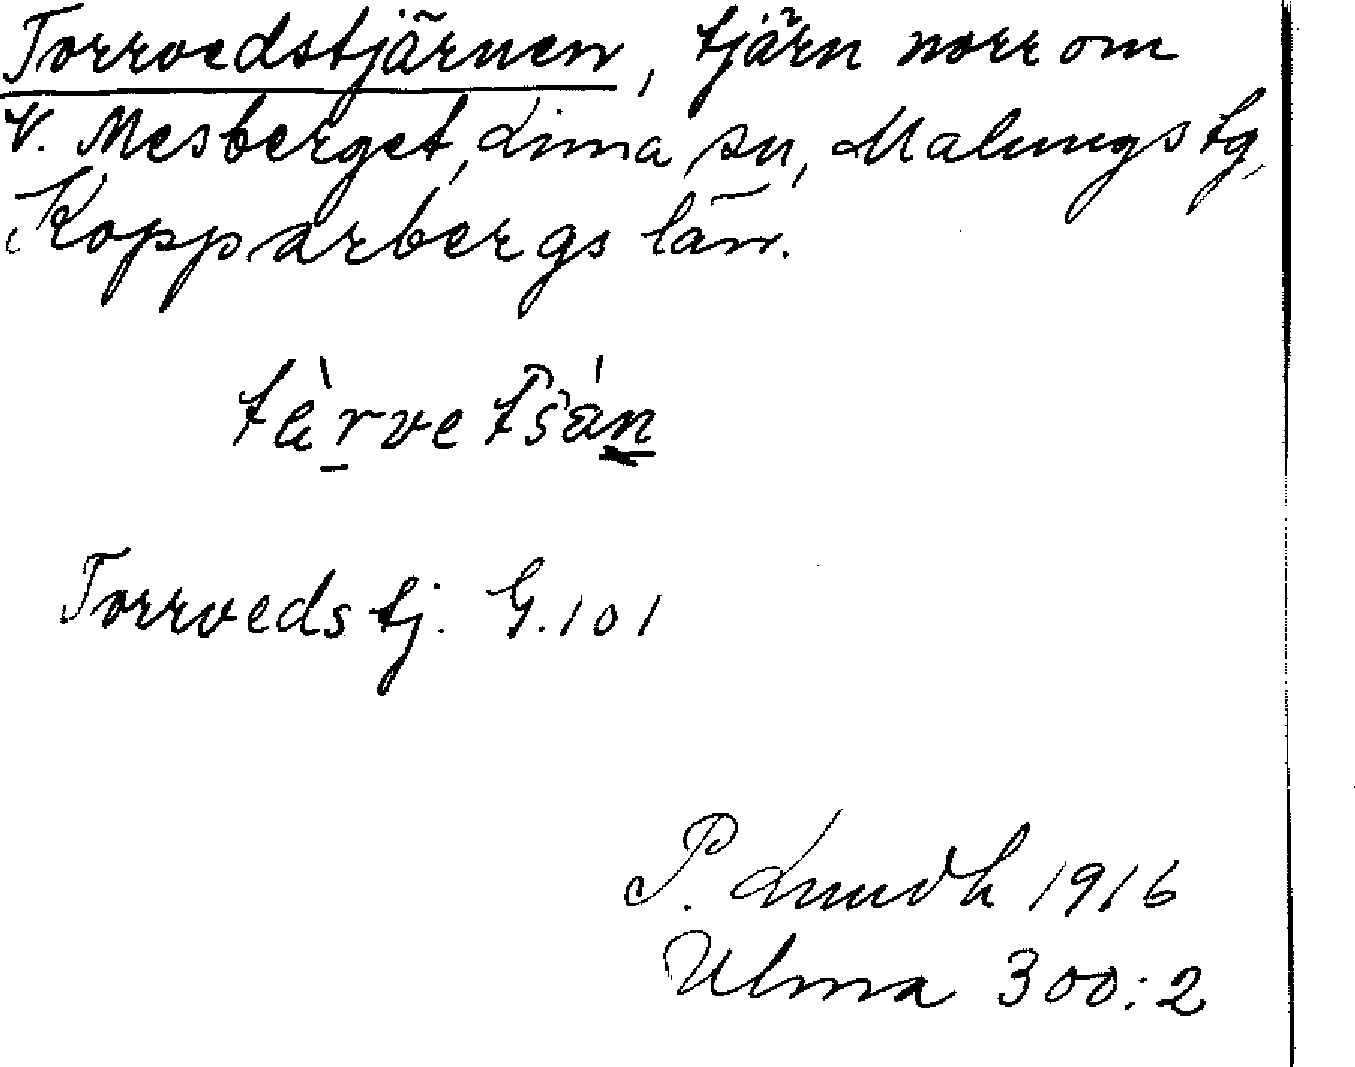 Torrvedstjärnen, tjärn norr om
V. Mesberget, Lima sn, Malungs tg,
Kopparbergs län.
Torrvedstj. G. 101
P. Lundh 1916
Ulma 300:2